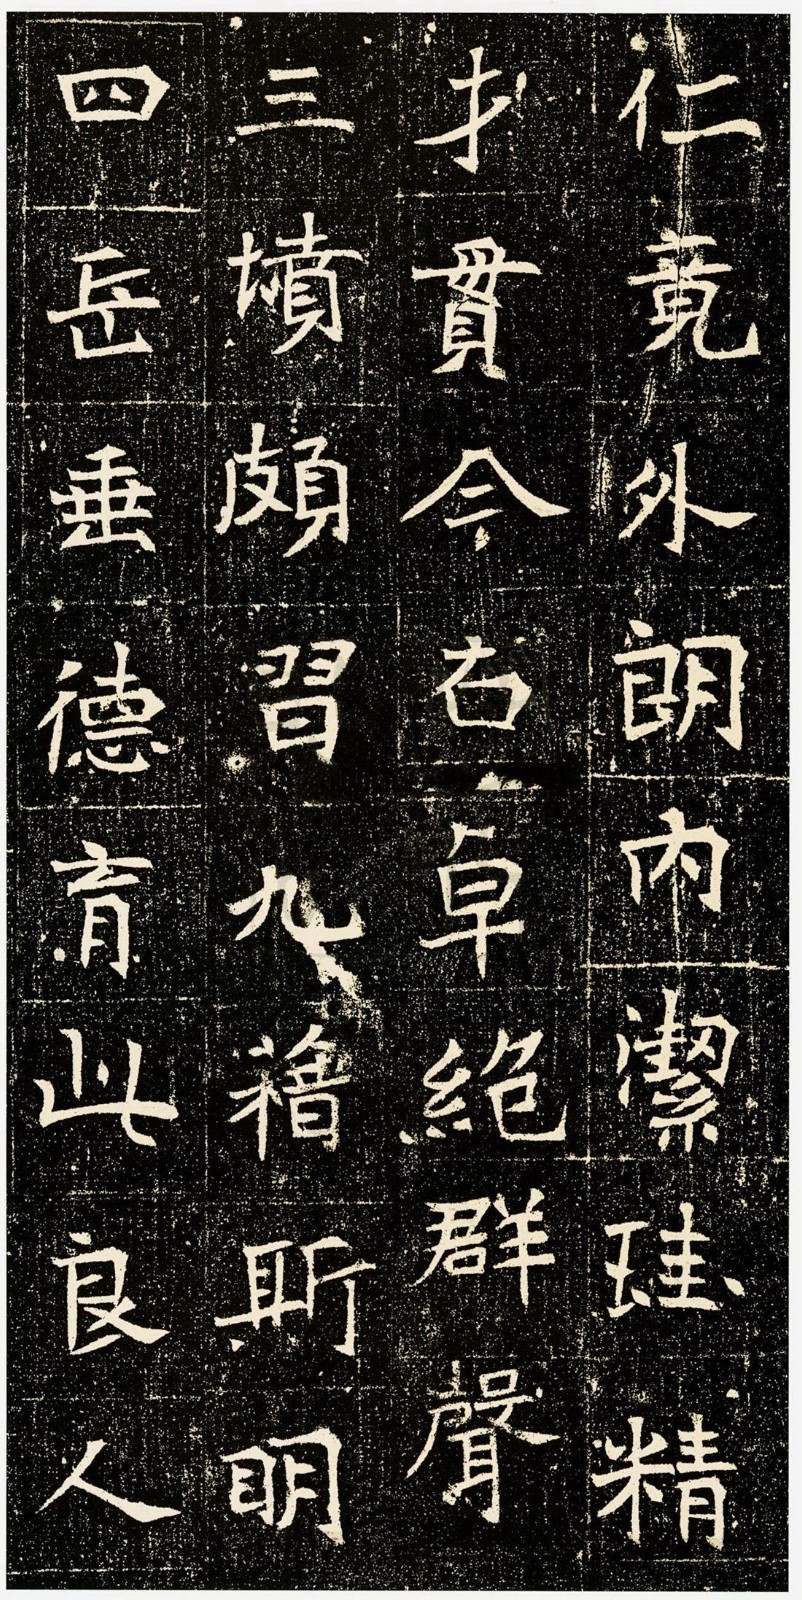 仁竟外朗內潔珪精
才貫今古卓絶群聲
三墳頗習九藉斯明
四岳垂德育此良人